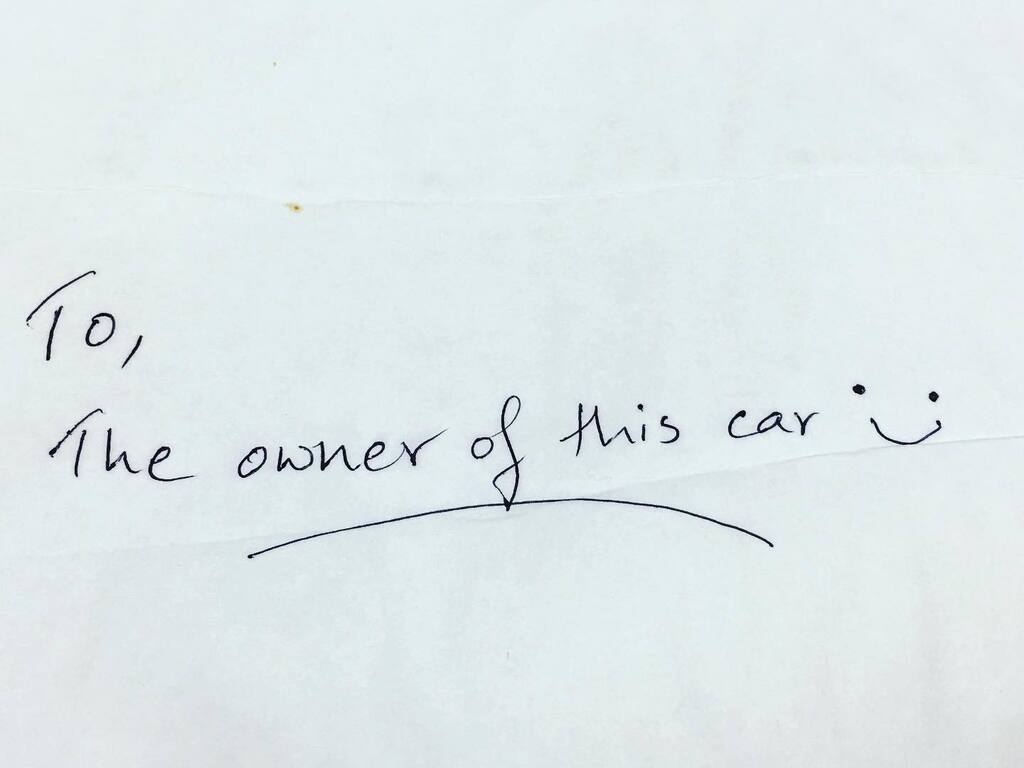 To,
The owner of this car